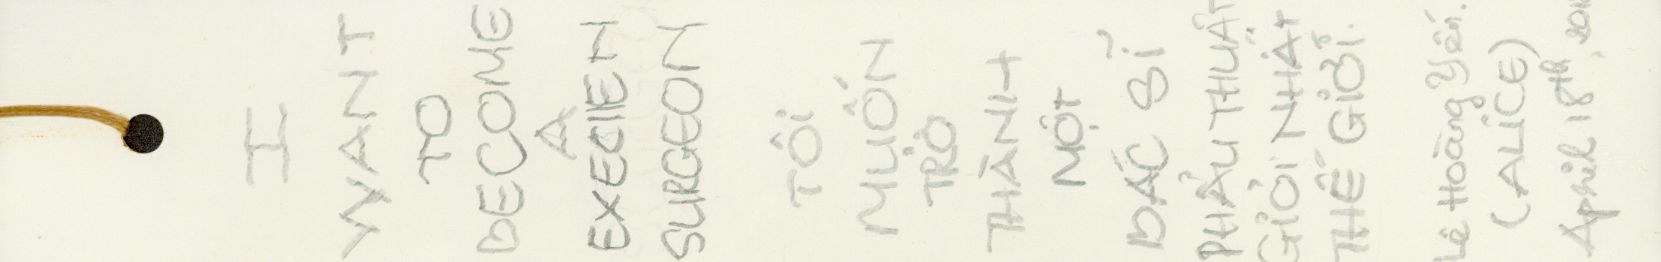 I
WANT
TO
BECOME
A
EXECllEN
SURGEON
TÔI
MUỐN
TRỞ
THÀNH
MỘT
BÁC SĨ
PHẪU THUẬT
GIỎI NHẤT
THẾ GIỚI.
Lê Hoàng Yến.
(ALICE)
April 18th,